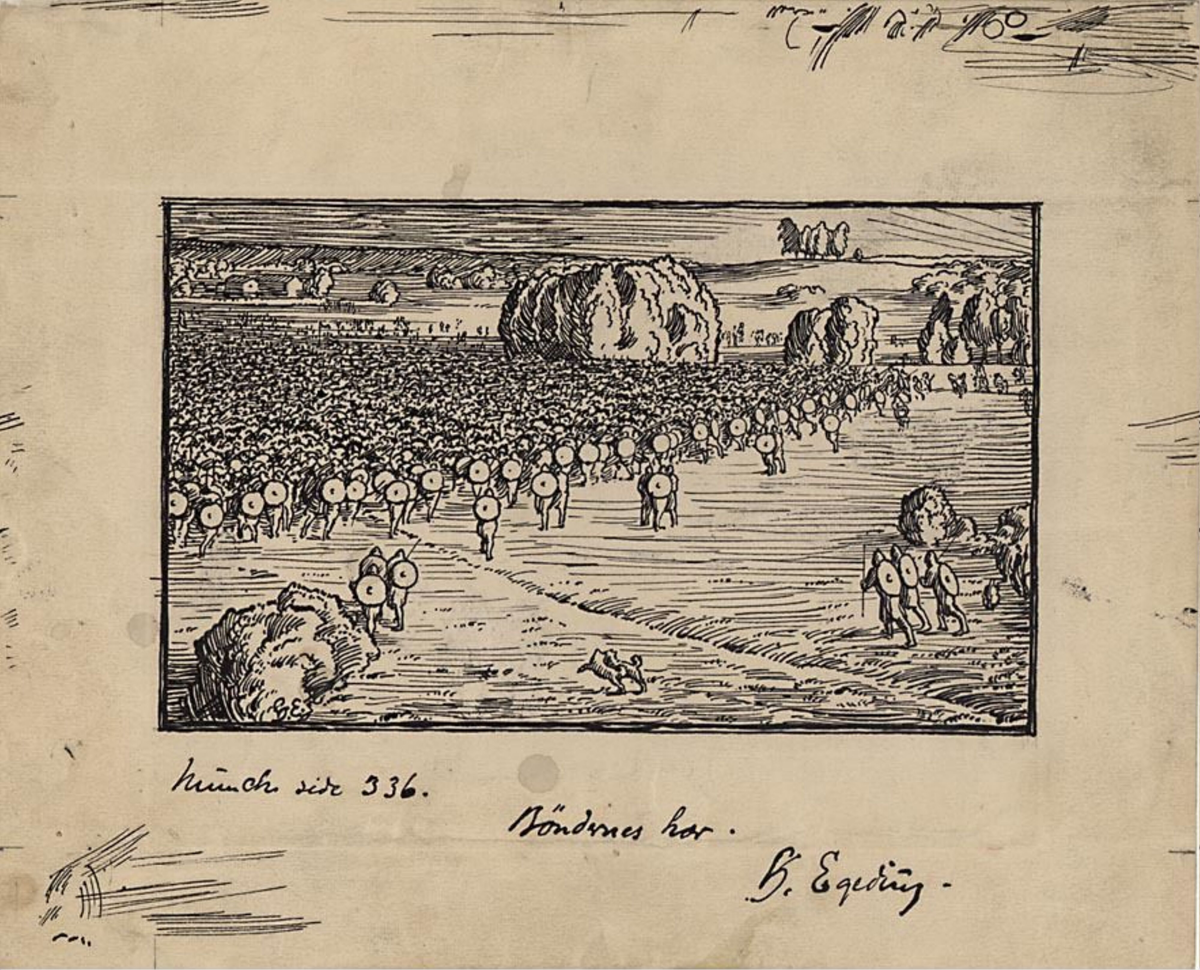 Munch side 336.
Böndernes hær.
H. Egedius.